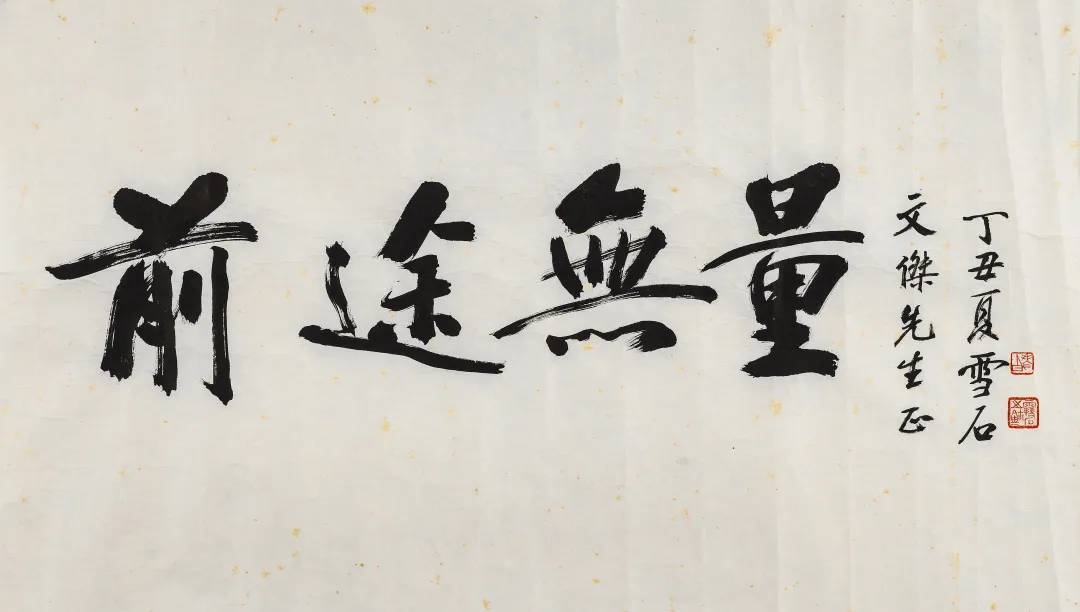 前途無量
文傑先生正
丁丑夏雪石